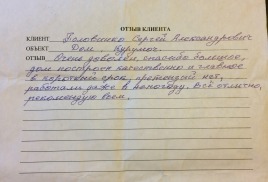 ОТЗЫВ КЛИЕНТА
КЛИЕНТ Головинко Сергей Александрович
ОБЪЕКТ Дом. Курумоч.
ОТЗЫВ Очень доволен, спасибо большое,
дом построен качественно и главное
в короткий срок, претензий нет,
работали даже в непогоду. Всё отлично,
рекомендую всем.